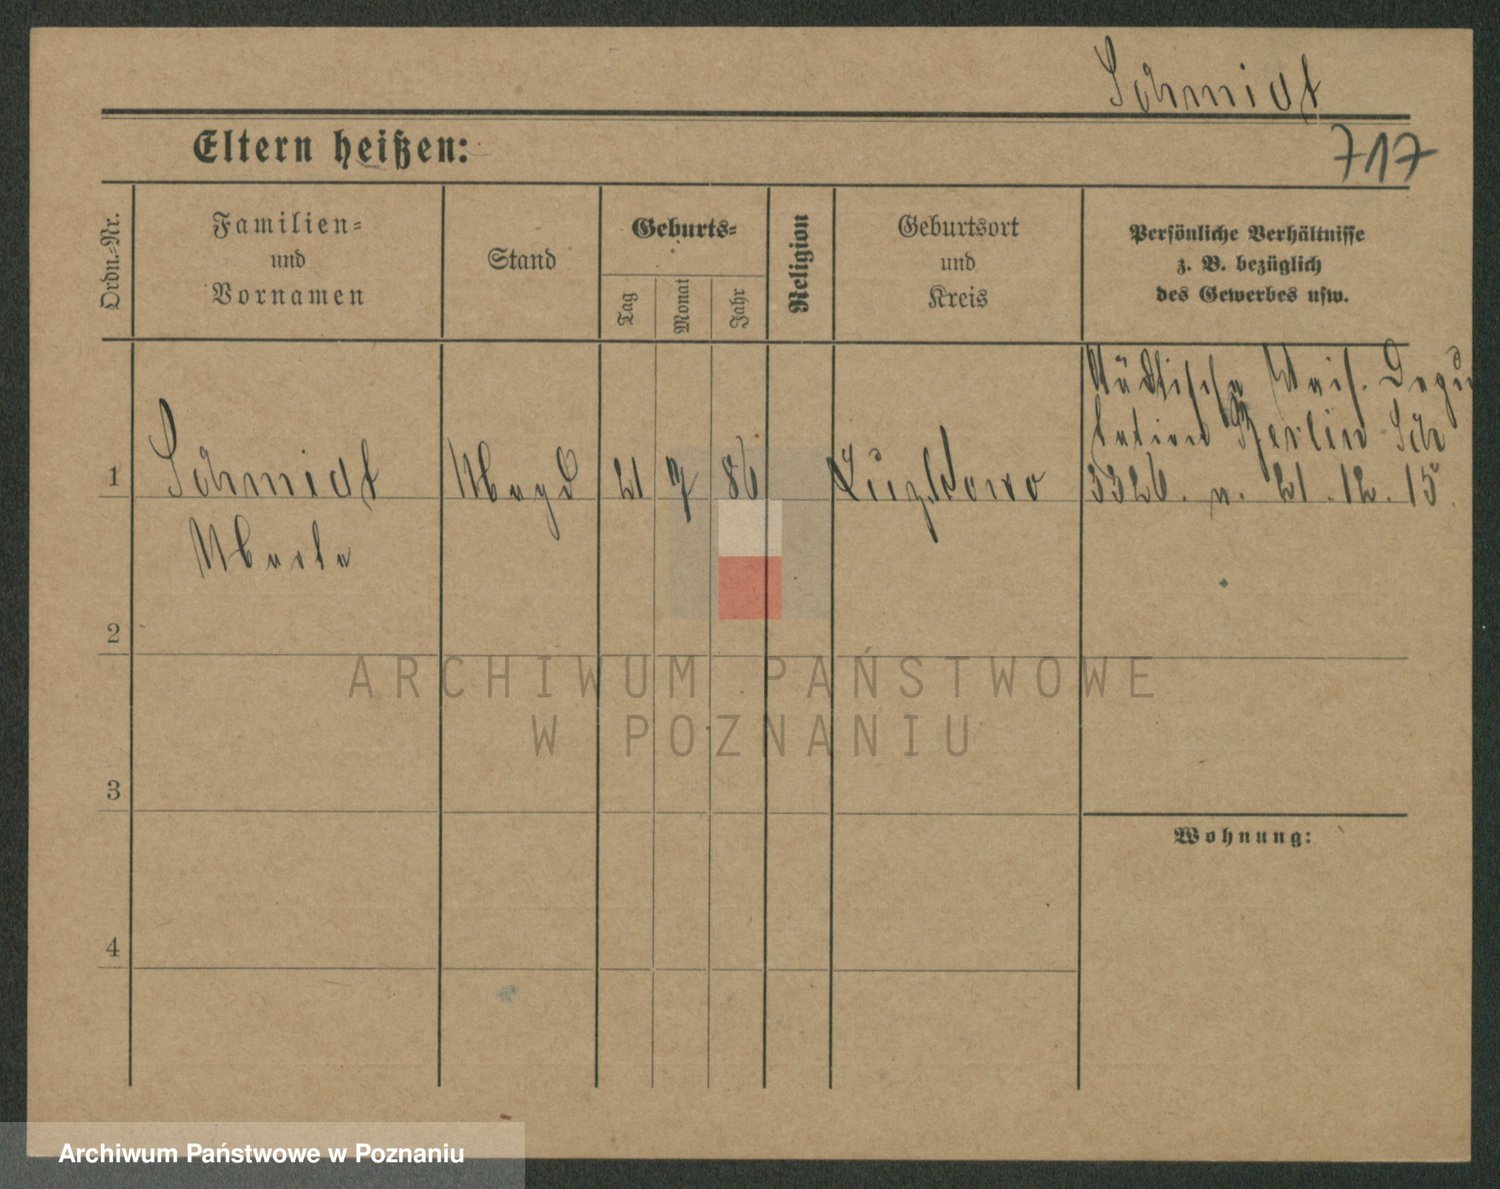 Schmidt
717
Eltern heißen:
Ordn.-Nr.
Familien-
und
Vornamen
Stand
Geburts-
Tag
Monat
Jahr
Religion
Geburtsort
und
Kreis
Persönliche Verhältnisse
z. B. bezüglich
des Gewerbes usw.
1
Schmidt
Magd
21
7
86
Städtische Wais. Depu
tation Berlin Sch
3326. v. 21.12.15.
2
3
4
Wohnung:
ARCHIWUM PAŃSTWOWE
W POZNANIU
Archiwum Państwowe w Poznaniu